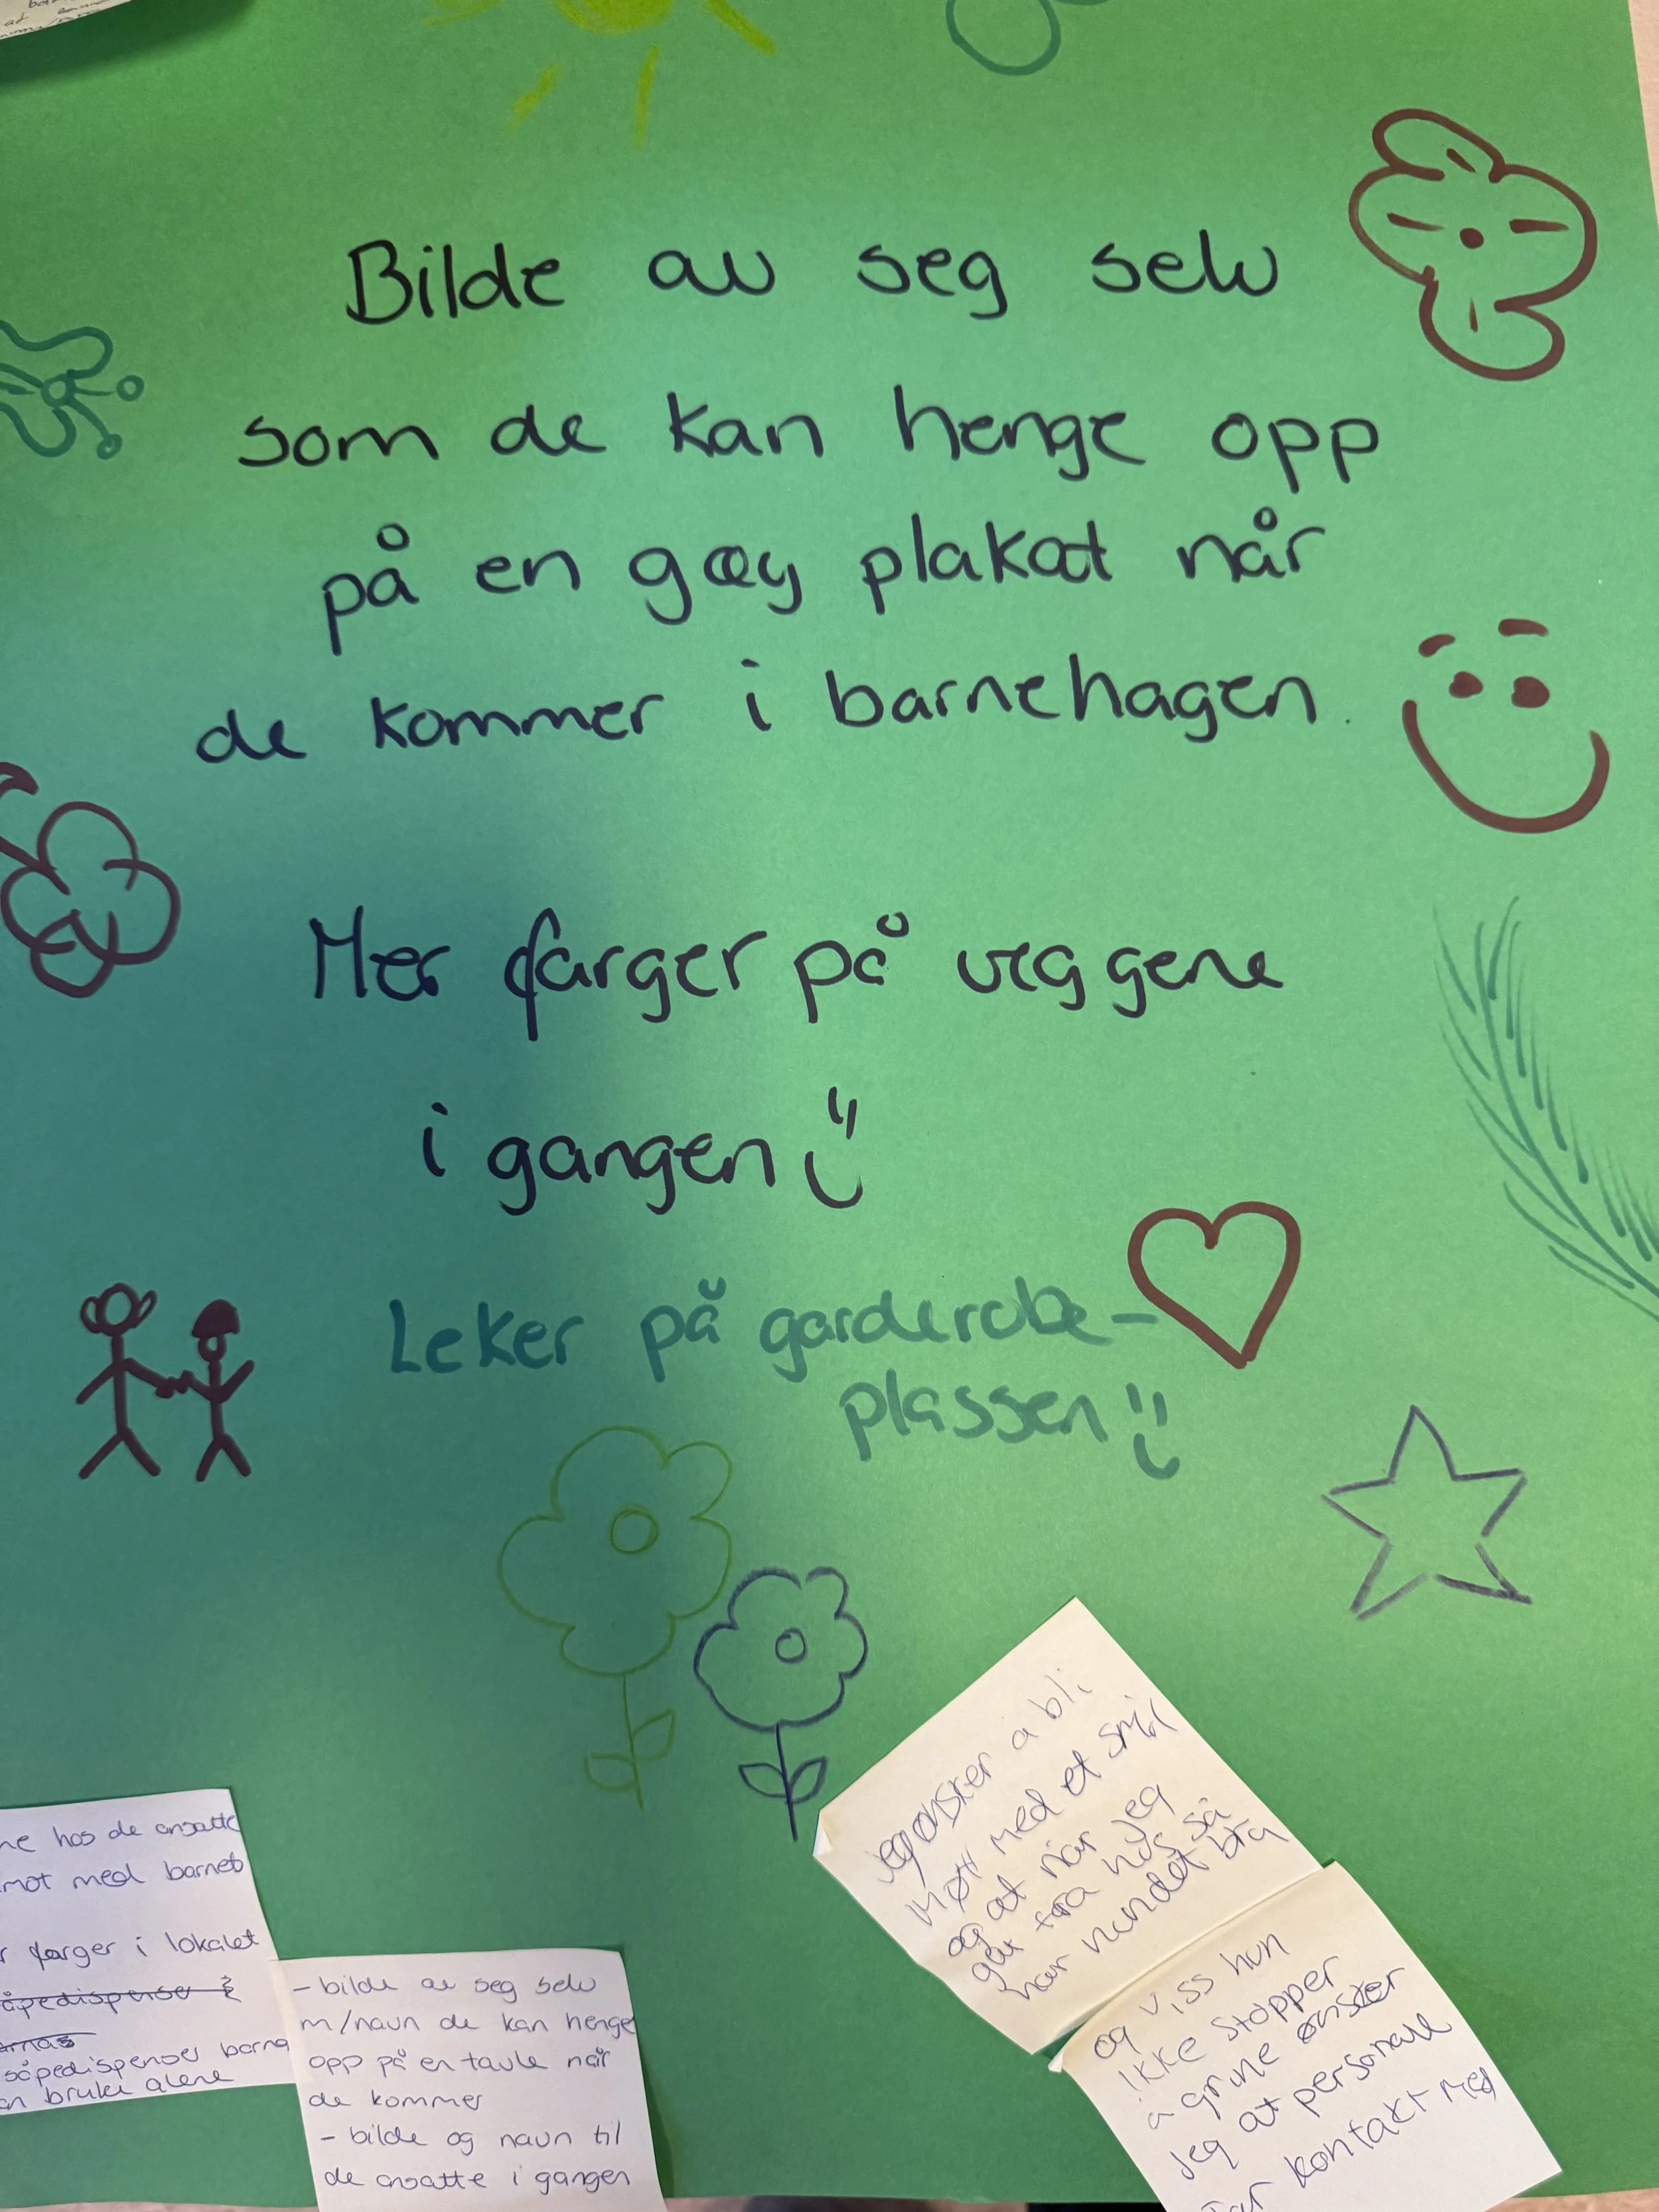 Bilde av seg selv
som de kan henge opp
på en gøy plakat når
de kommer i barnehagen.
Mer farger på veggene
i gangen
Leker på garderobe-
plassen
jeg ønsker å bli
møtt med et smil
og at når jeg
går fra hås så
har hun det bra
og viss hun
ikke stopper
å grine ønsker
jeg at personale
tar kontakt med
ne hos de ansatte
mot med barnet
r farger i lokalet
såpedispenser barna
an bruke alene
- bilde av seg selv
m/navn de kan henge
opp på en tavle når
de kommer
- bilde og navn til
de ansatte i gangen